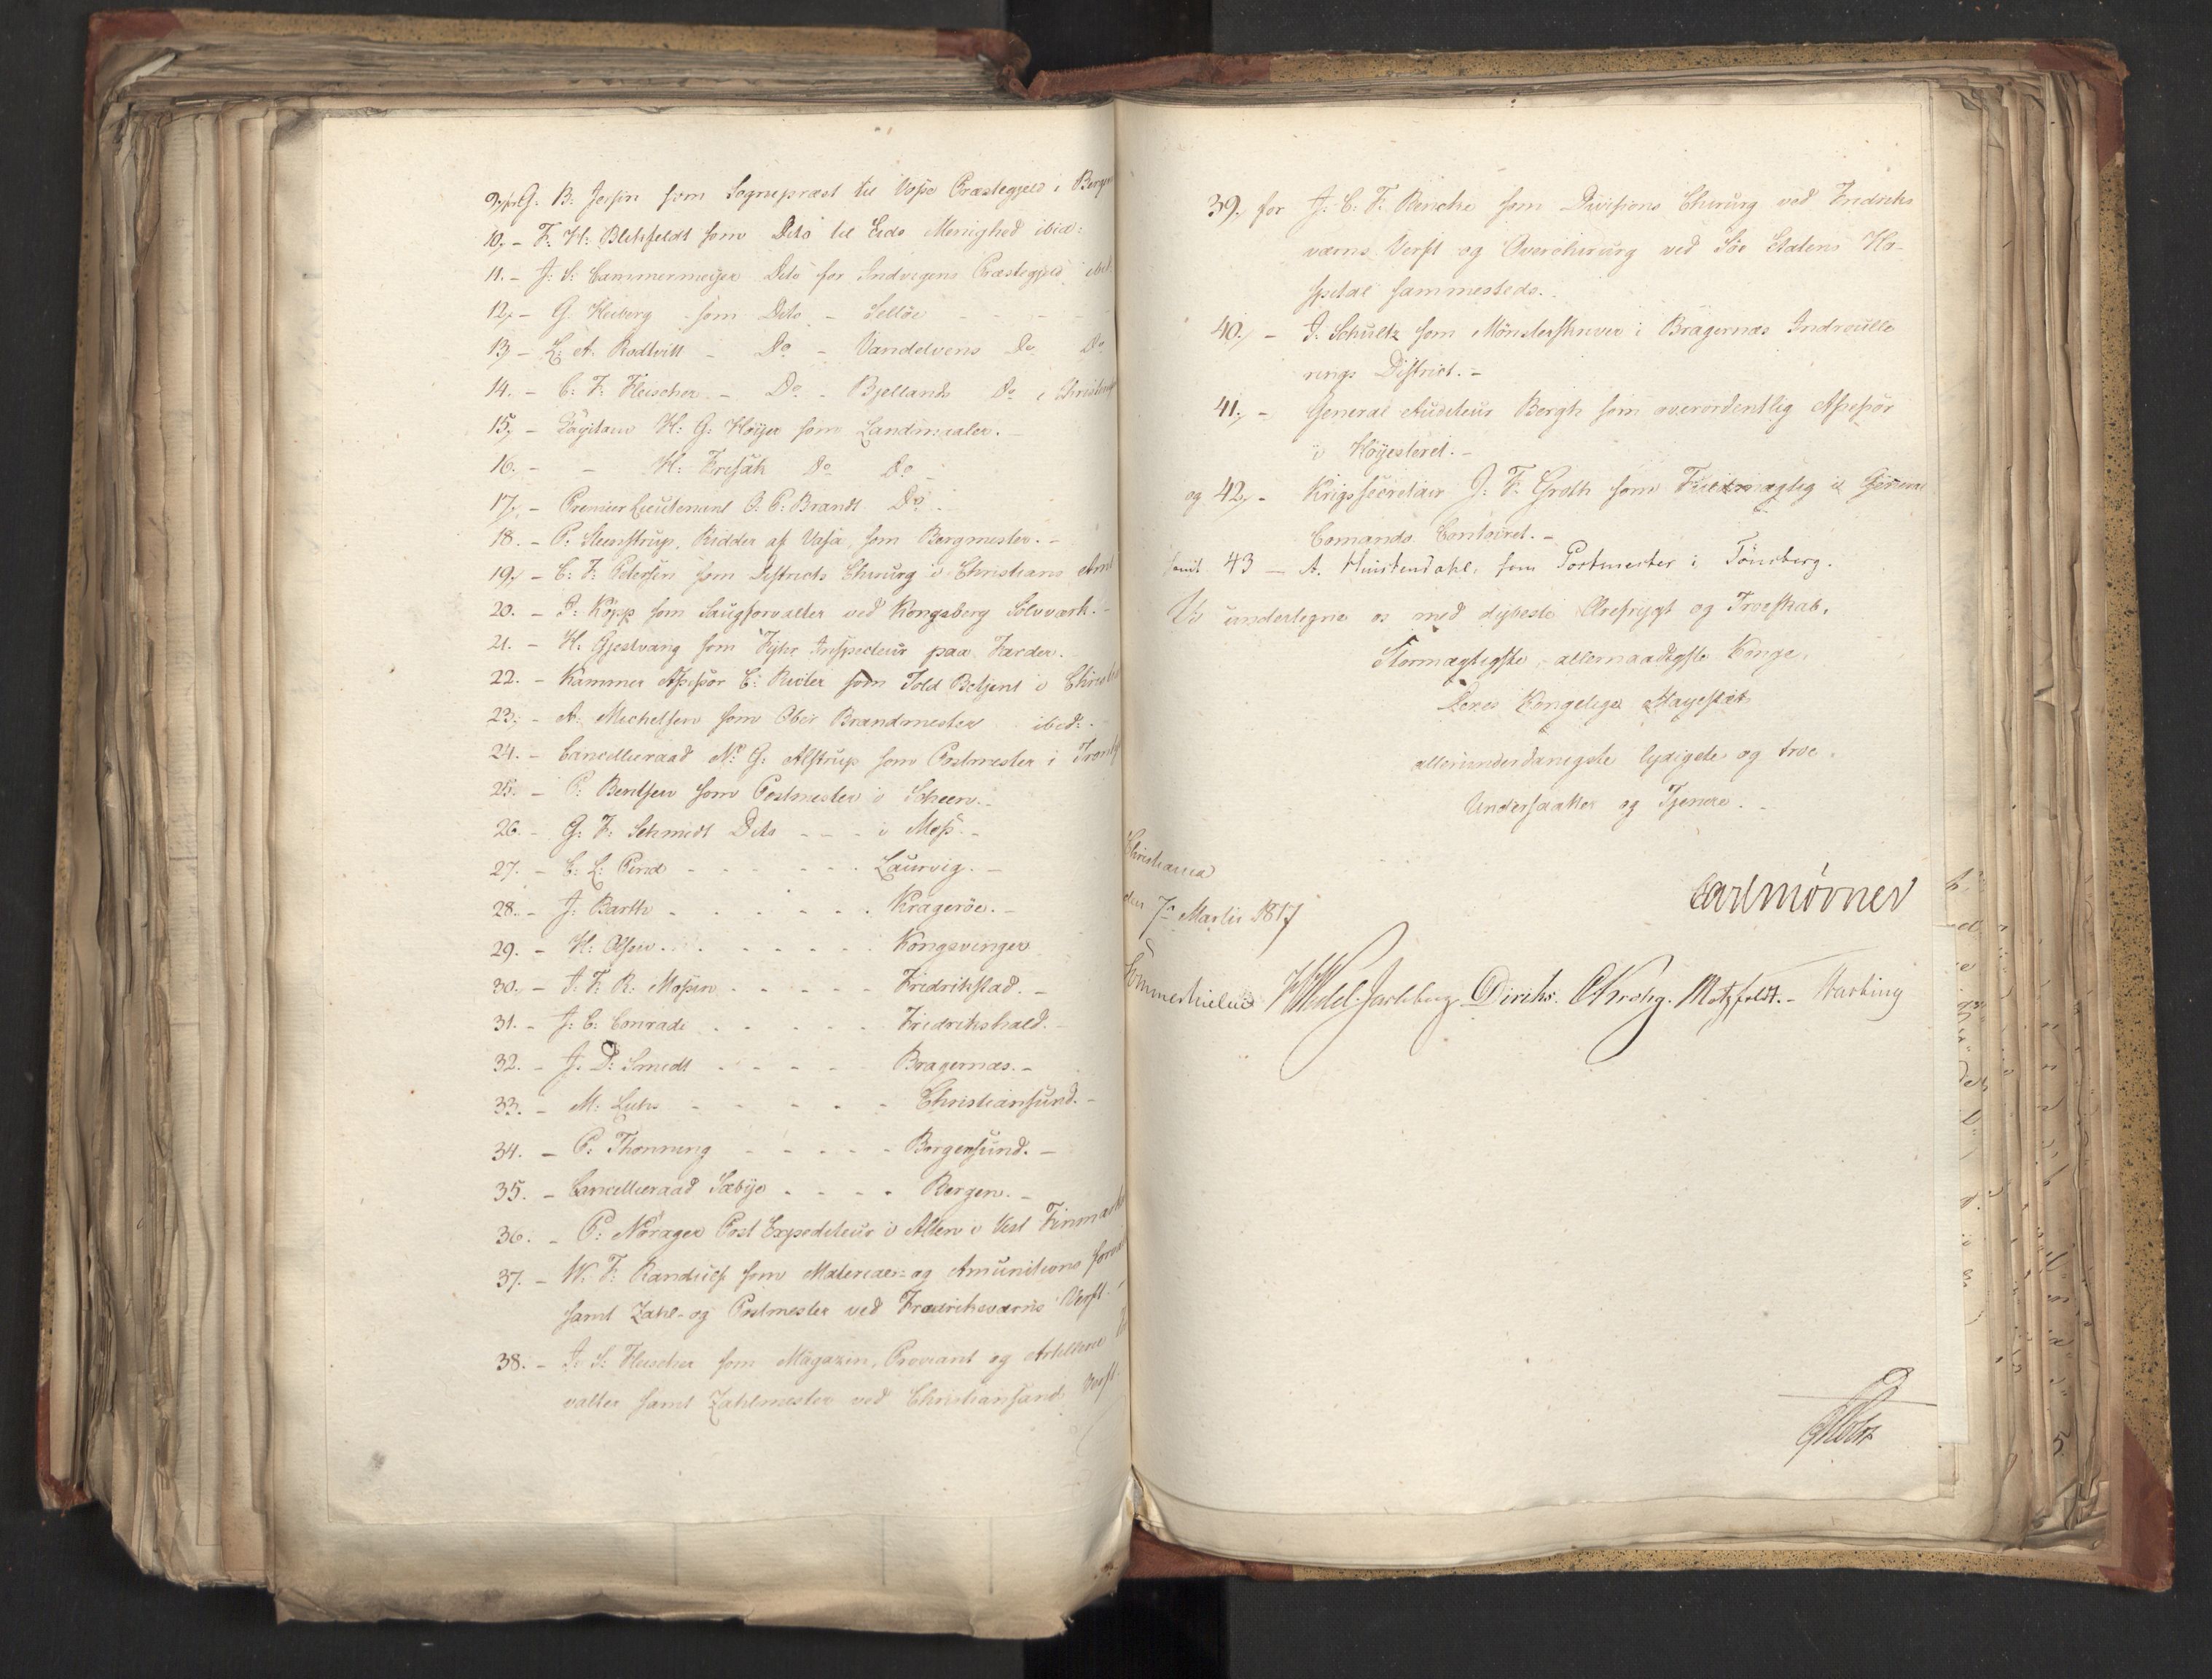 9, for G: B: Jersin som Sognepræst til Vosse Præstegjeld i Bergen
10, - F. H: Blehfeldt som Dito til Eids Menighed ibid:
11. - J: S: Cammermeijer Dito for Indvigens Præstegjeld ibid.
12, - G. Heiberg - som Dito - Selløe - - - -
13, - L: A. Rodtvitt - Do - Vandelvens Do Do
14. - C: F. Fleischer. - Do. - Bjellands Do i Christians
15, - Capitain H: G: Höijer som Landmaaler. -
16. - - H: Frisak Do Do -
17, - Premier Lieutenant O. P: Brandt Do -
18. - P. Steenstrup, Ridder af Vasa, som Bergmester. -
19, - C: F. Petersen som Districts Chirurg i Christians Amt
20. - P: Köpp som Saugforvalter ved Kongsberg Sölvværk. -
21. - H. Gjestvang som Fyhr Inspecteur paa Færder. -
22. - Kammer Assessor C: Reuter som Told Betjent i
23, - A. Michelsen som Ober Brandmester ibid: -
24. - Cancellieraad N: G: Alstrup som Postmester i
25. - P. Bentsen som Postmester i Scheen. -
26. - G. F: Schmidt Dito - - - i Moss. -
27. - C: L: - - - - - Laurvig. -
28. - J. Barth - . - - . . Kragerøe. -
29. - H: Olsen . . . - - . - Kongsvinger
30. - J: F. R. - - - - - Fridrikstad. -
31. - J: C: Conradi . . - - . Fridrikshald. -
32. - J. D: Smidt - - - - - Bragernæs. -
33. - M: - - - - - Christiansund. -
34. - P. Thonning - - - - - Borgersund. -
35. - Cancellieraad Sæbye . . - . Bergen. -
36. - P: Norager Post Expediteur i Alten i Vest Finmarken
37. - W. F: Randulf som Material- og Amunitions
samt Zahl- og Postmester ved Fredriksværns Verft
38. - J. S. Fleischer som Magazin, Proviant og Artillerie
valter samt Zahlmester ved Christiansand. Verft
39, for J: C: F. Reincke som Divisions Chirurg ved Fridriks
værns Verft og Overchirurg ved Söe Etatens Ho-
spital sammesteds.
40, - J. Schultz som Mönsterskriver i Bragernæs Indroulle
rings District. -
41, - General Auditeur Bergh som overordentlig Assessor
i Höyesteret. -
og 42, - Krigssecretair J: F. Groth som Fuldmægtig i General
Comando Contoiret. -
samt 43 - A. Huitendahl, som Postmester i Tönsberg.
Vi undertegne os med dybeste Ærefrygt og Troeskab,
Stormægtigste, allernaadigste Konge,
Deres Kongelige Mayestæts
allerunderdanigste lydigste og troe
Undersaatter og Tjenere. -
Christiania
den 7de Martii 1817
Carl Mörner
Sommerhielm HWedel Jarlsberg Diriks. CKrohg. Motzfeldt. - Harbing
GHolst